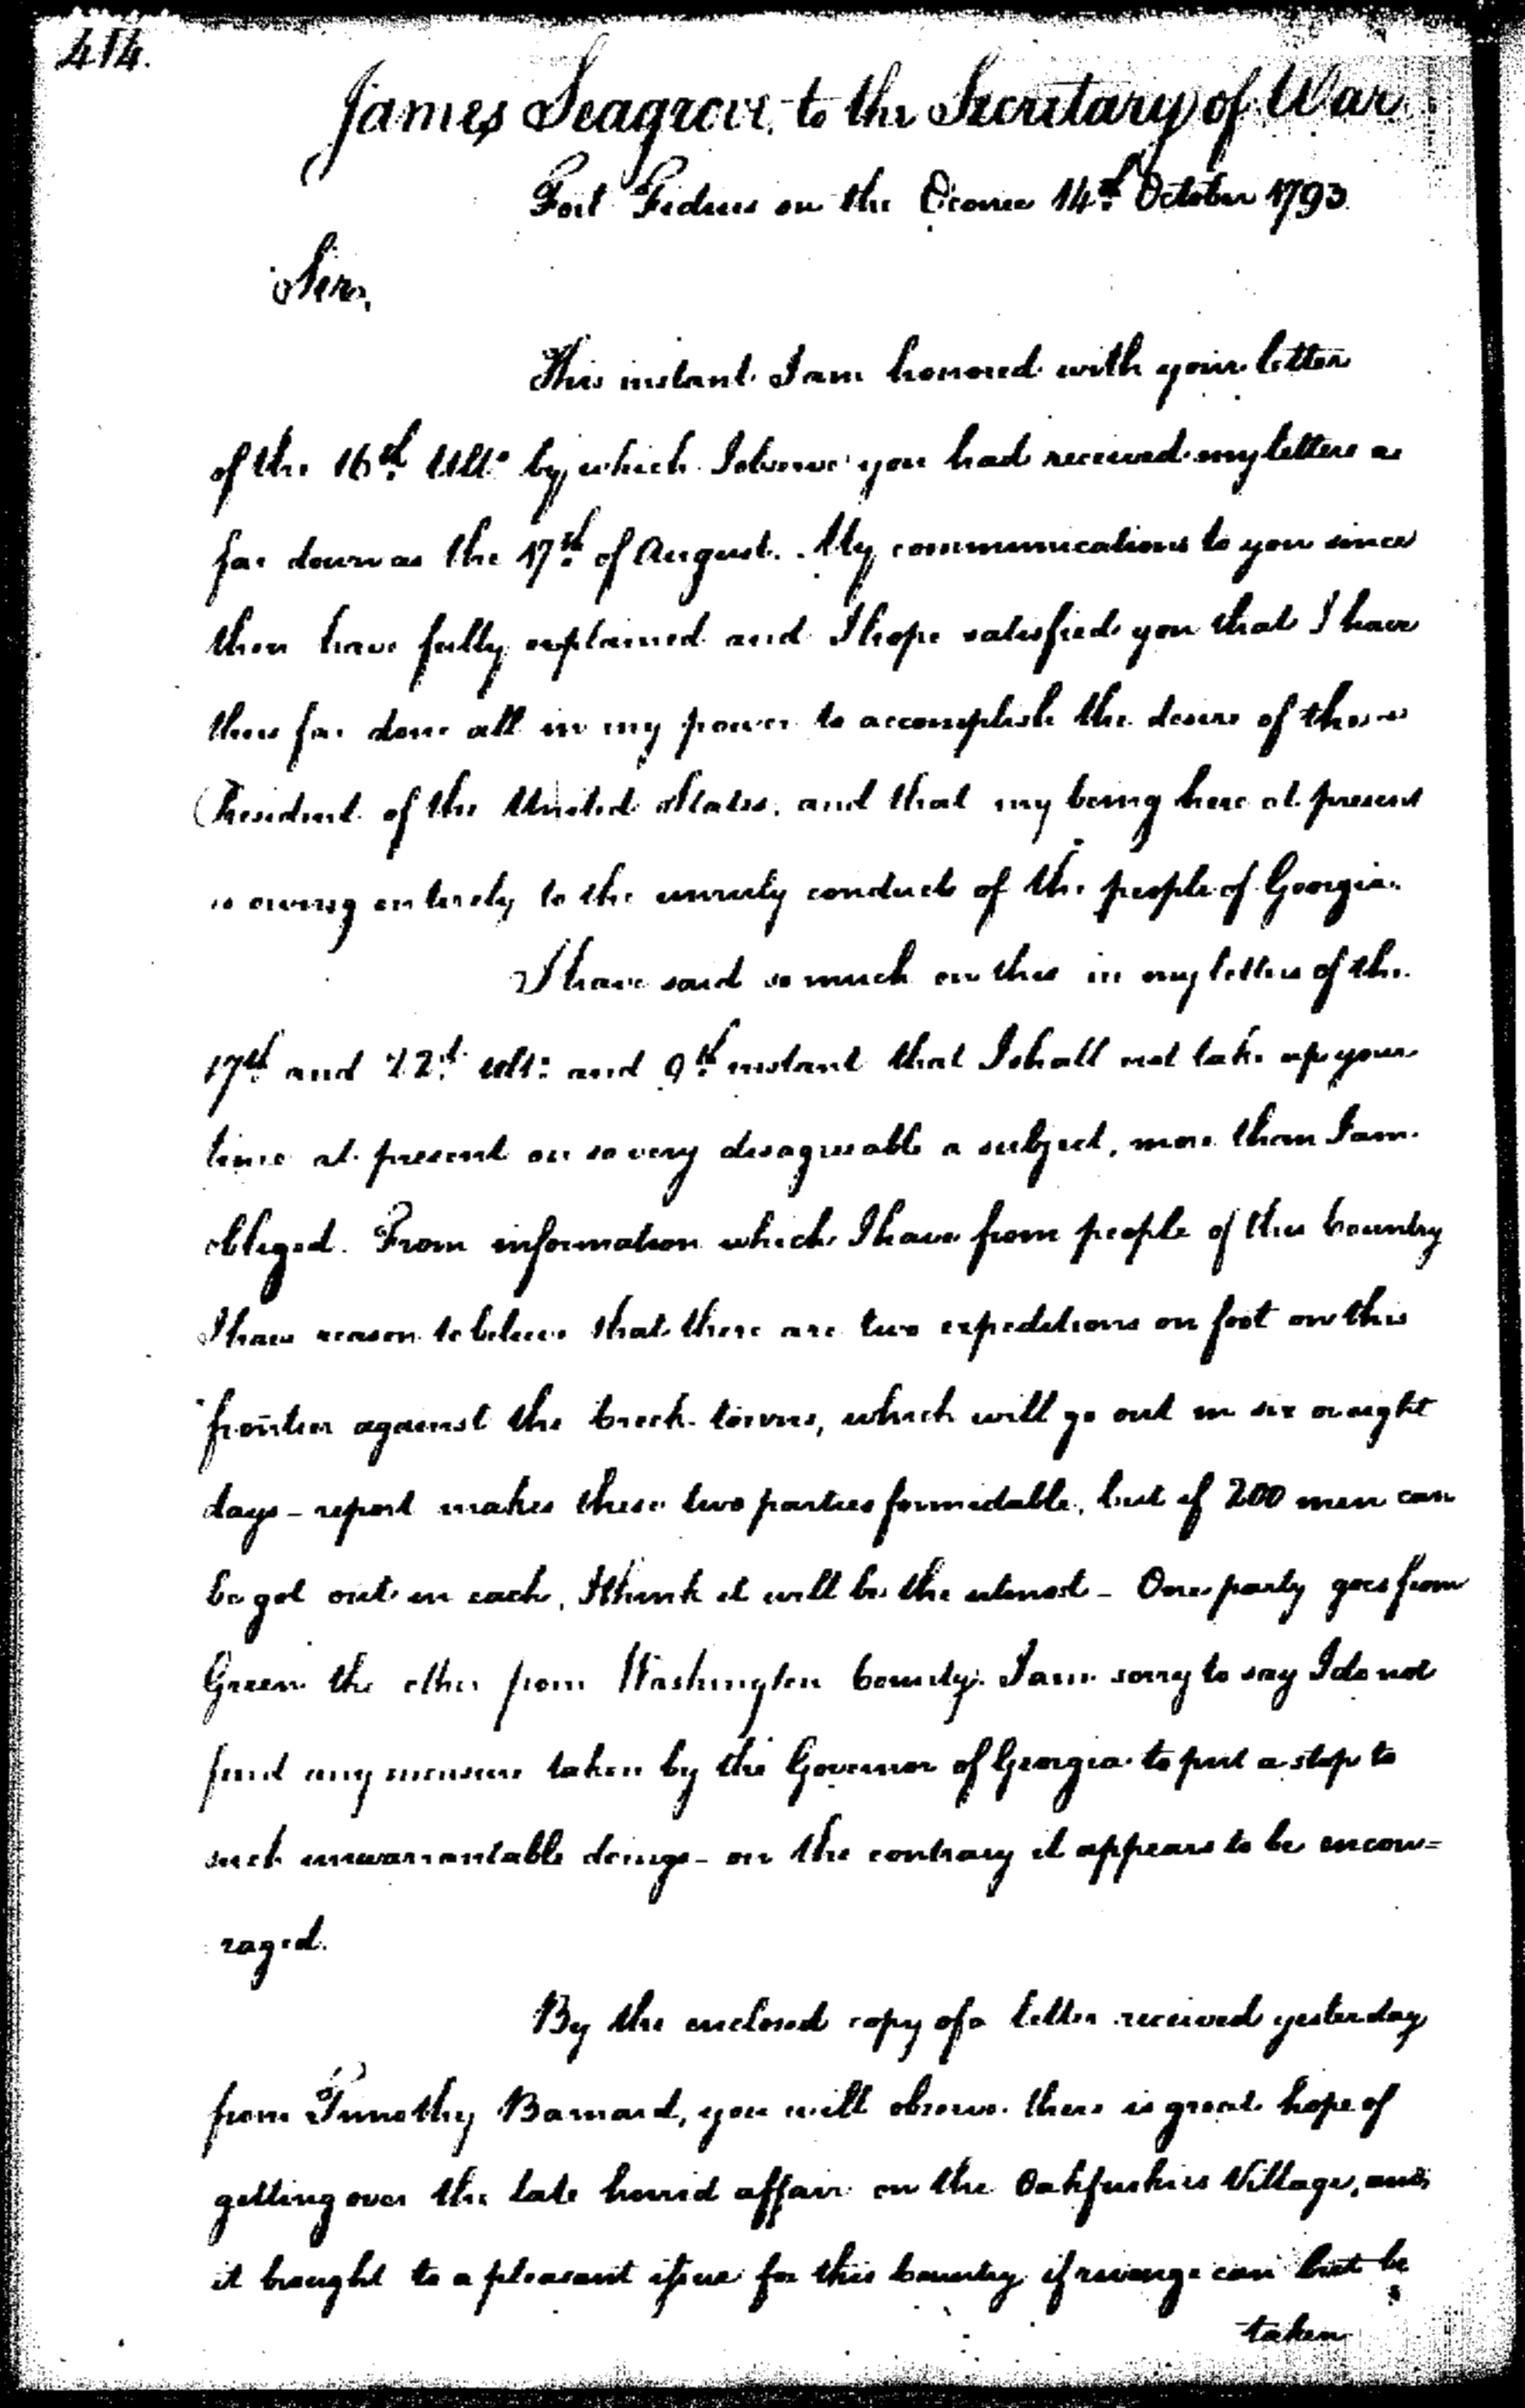 414.
James Seagrove to the Secretary of War
Fort Fidius on the Oconee 14th October 1793
Sir,
This instant I am honored with your letter
of the 16th Ulto by which I observe you had received my letters as
far down as the 17th of August. My communications to you since
then have fully explained and I hope satisfied you that I have
thus far done all in my power to accomplish the desire of the
President of the United States, and that my being here at present
is owing entirely to the unruly conduct of the people of Georgia.
I have said so much on this in my letters of the
17th and 22d ulto: and 9th instant that I shall not take up your
time at present on so very disagreeable a subject, more than I am
obliged. From information which I have from people of this Country
I have reason to believe that there are two expeditions on foot on this
frontier against the Creek towns, which will go out in six or eight
days - report makes these two parties formidable, but if 200 men can
be got out in each, I think it will be the utmost - One party goes from
Green the other from Washington County. I am sorry to say I do not
find any measure taken by the Governor of Georgia to put a stop to
such unwarrantable doings - on the contrary it appears to be encou=
raged.
By the enclosed copy of a letter received yesterday
from Timothy Barnard, you will observe there is great hope of
getting over the late horrid affair on the Oakfuskies Village, and
it brought to a pleasant issue for this Country if revenge can but be
taken